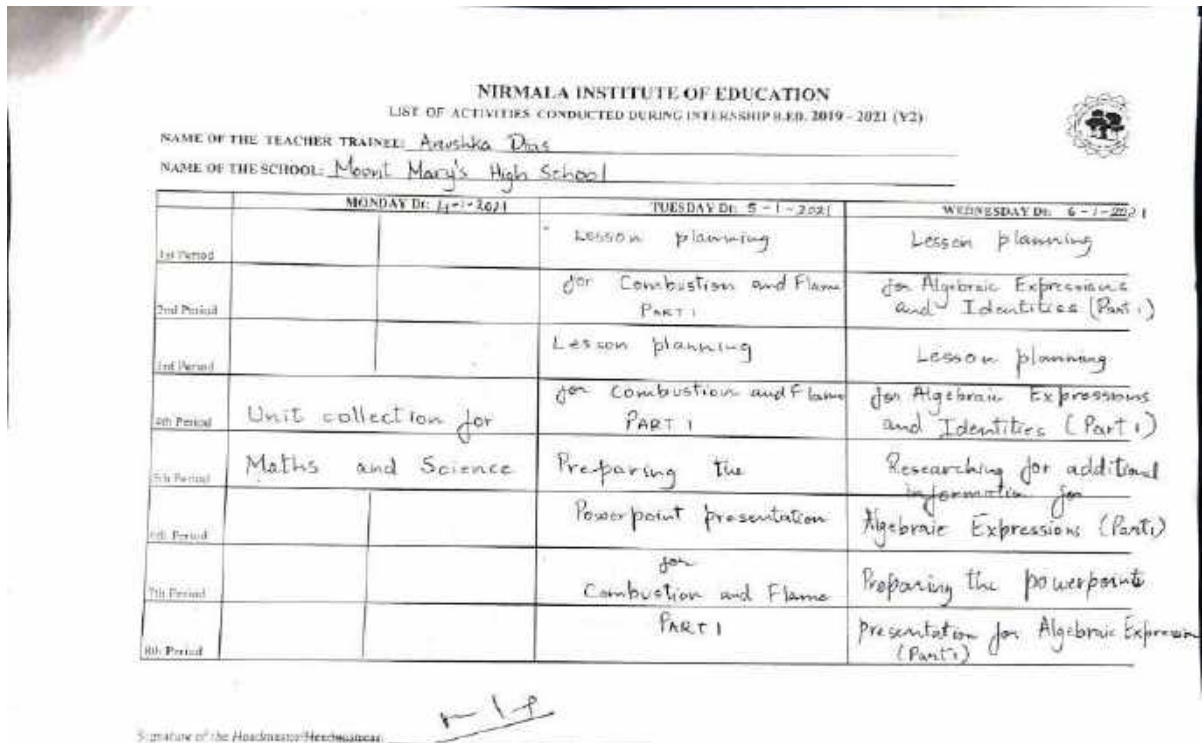 NIRMALA INSTITUTE OF EDUCATION
LIST OF ACTIVITIES CONDUCTED DURING INTERNSHIP B.ED. 2019 - 2021 (Y2)
NAME OF THE TEACHER TRAINEE: Anushka Dias
NAME OF THE SCHOOL: Mount Mary's High School
MONDAY Dt: 4-1-2021 TUESDAY Dt: 5-1-2021 WEDNESDAY Dt: 6-1-2021
1st Period Lesson planning Lesson planning
2nd Period for Combustion and Flame PART 1 for Algebraic Expressions and Identities (Part 1)
3rd Period Lesson planning Lesson planning
4th Period Unit collection for for Combustion and Flame PART 1 for Algebraic Expressions and Identities (Part 1)
5th Period Maths and Science Preparing the Researching for additional information for
6th Period Powerpoint presentation Algebraic Expressions (Part 1)
7th Period for Combustion and Flame Preparing the powerpoint
8th Period PART 1 Presentation for Algebraic Expression (Part 1)
Signature of the Headmaster/Headmistress: